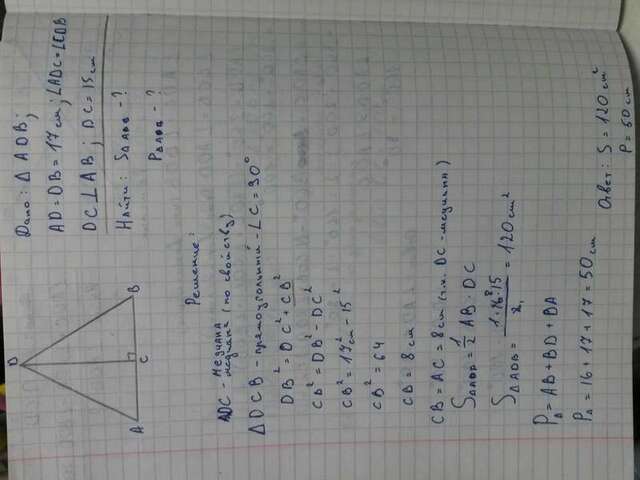 D
A
C
B
Дано: ΔADB;
AD=DB=17см; ∠ADC=∠CDB
DC⊥AB; DC=15см
Найти: SΔADB-?
PΔADB-?
Решение:
DC - медиана (по свойству)
ΔDCB-прямоугольный-∠C=90°
DB²=DC²+CB²
CB²=DB²-DC²
CB²=17²-15²
CB²=64
CB=8см
CB=AC=8см (т.к. DC-медиана)
SΔADB=1/2 AB·DC
SΔADB=1·16⁸·15/2₁=120см²
P△=AB+BD+BA
P△=16+17+17=50см
Ответ: S=120см²
P=50см